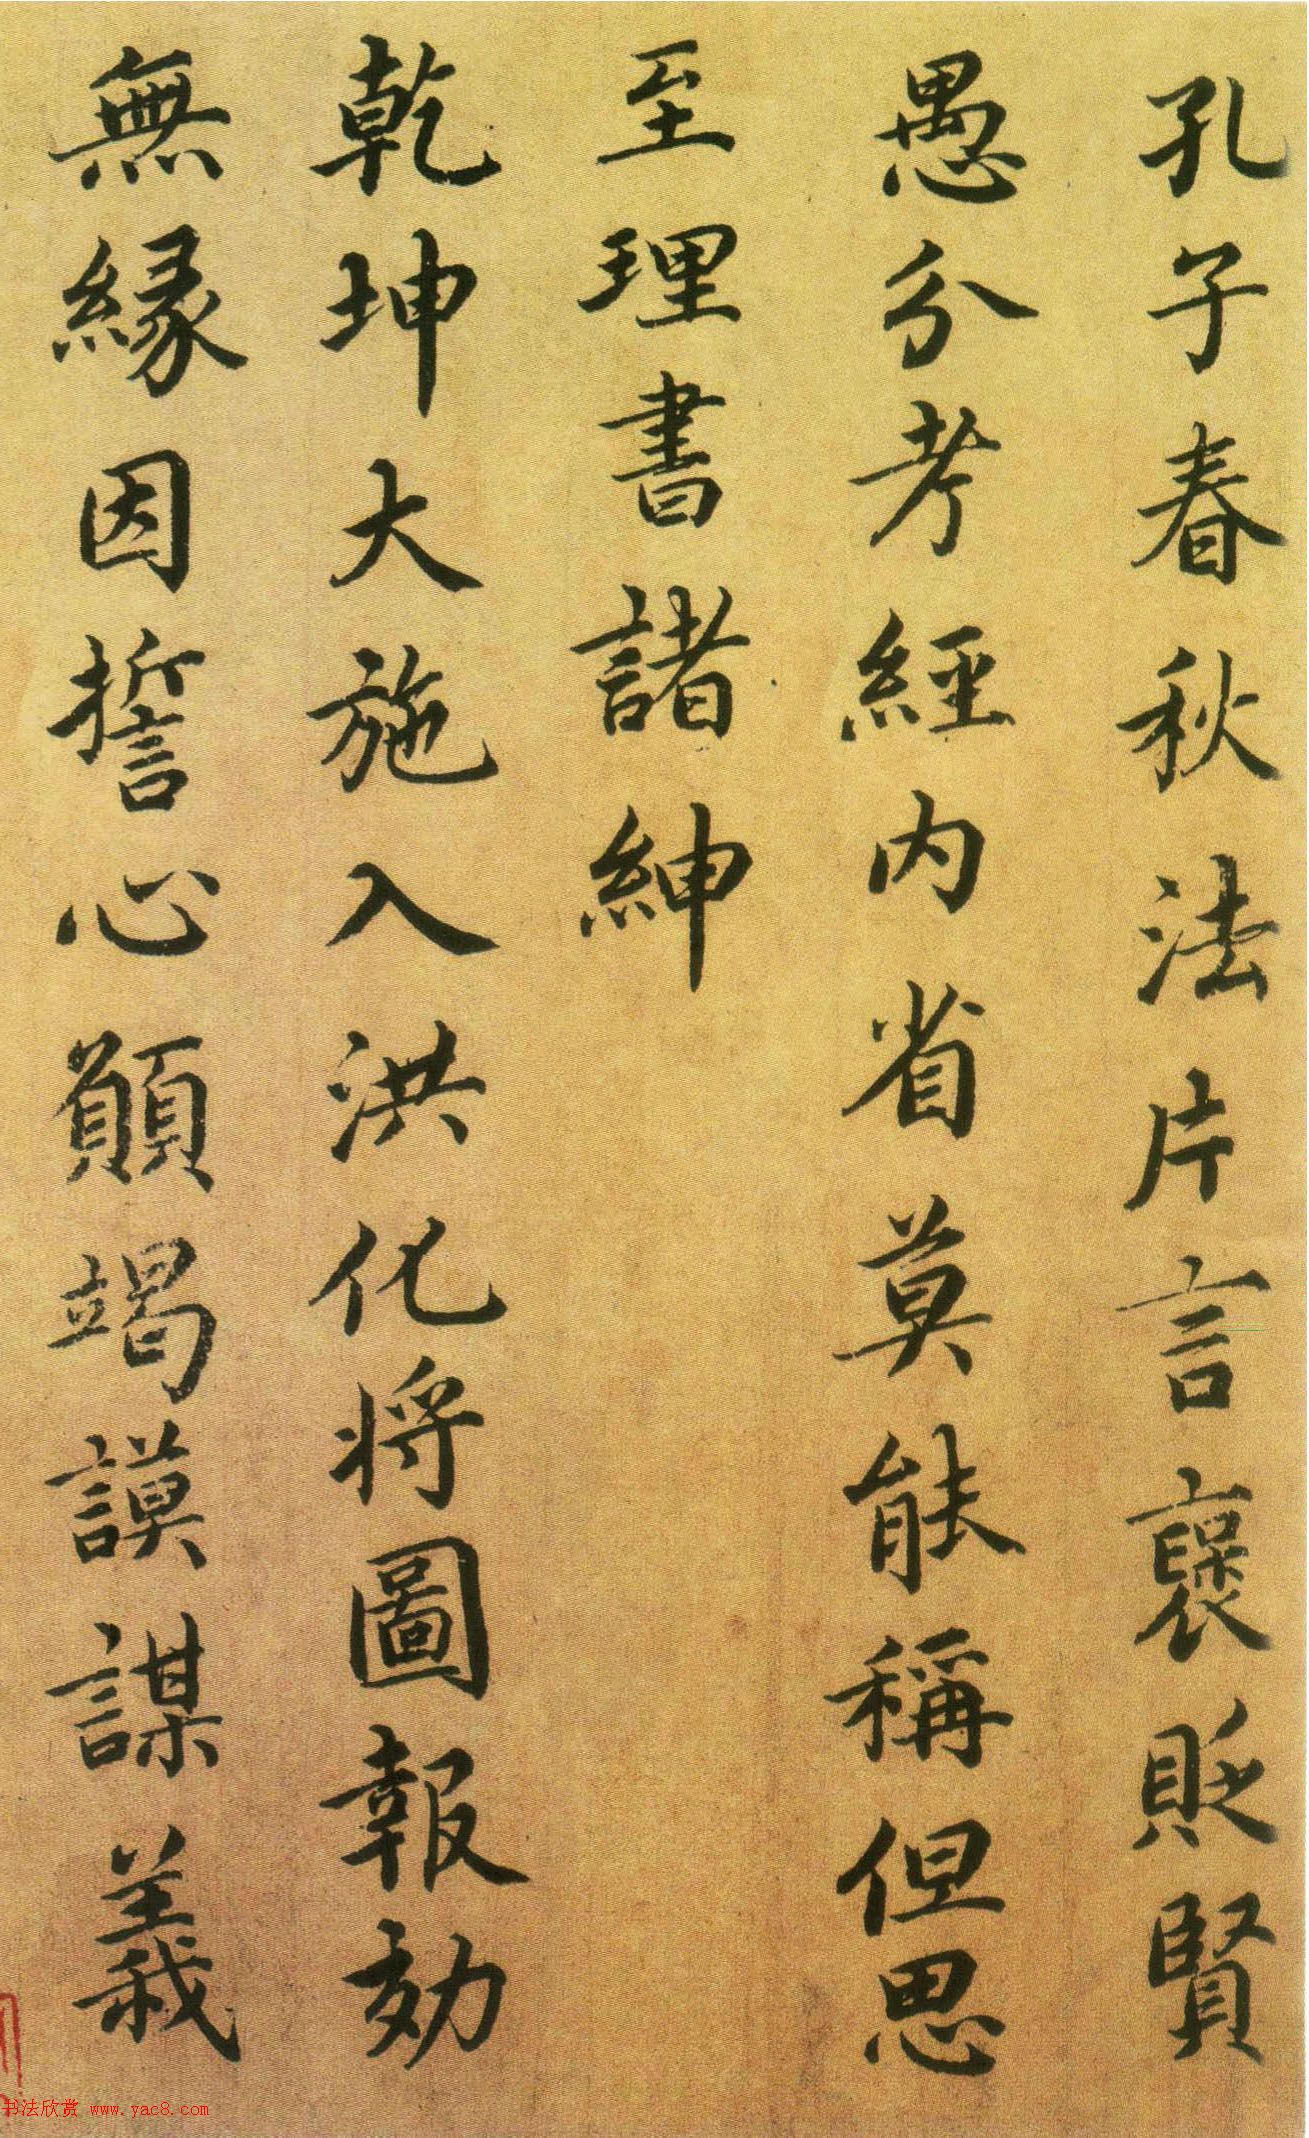 孔子春秋法片言褒貶賢
愚分考經內省莫能稱但思
至理書諸紳
乾坤大施入洪化將圖報効
無緣因誓心願竭謨謀義
书法欣赏 www.yac8.com